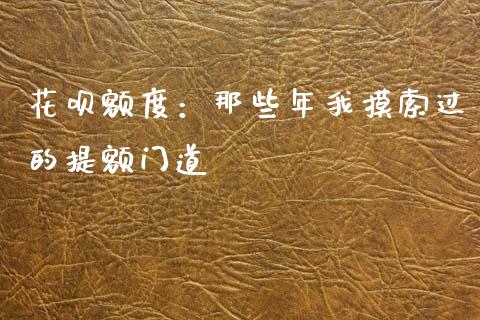 花呗额度：那些年我摸索过
的提额门道